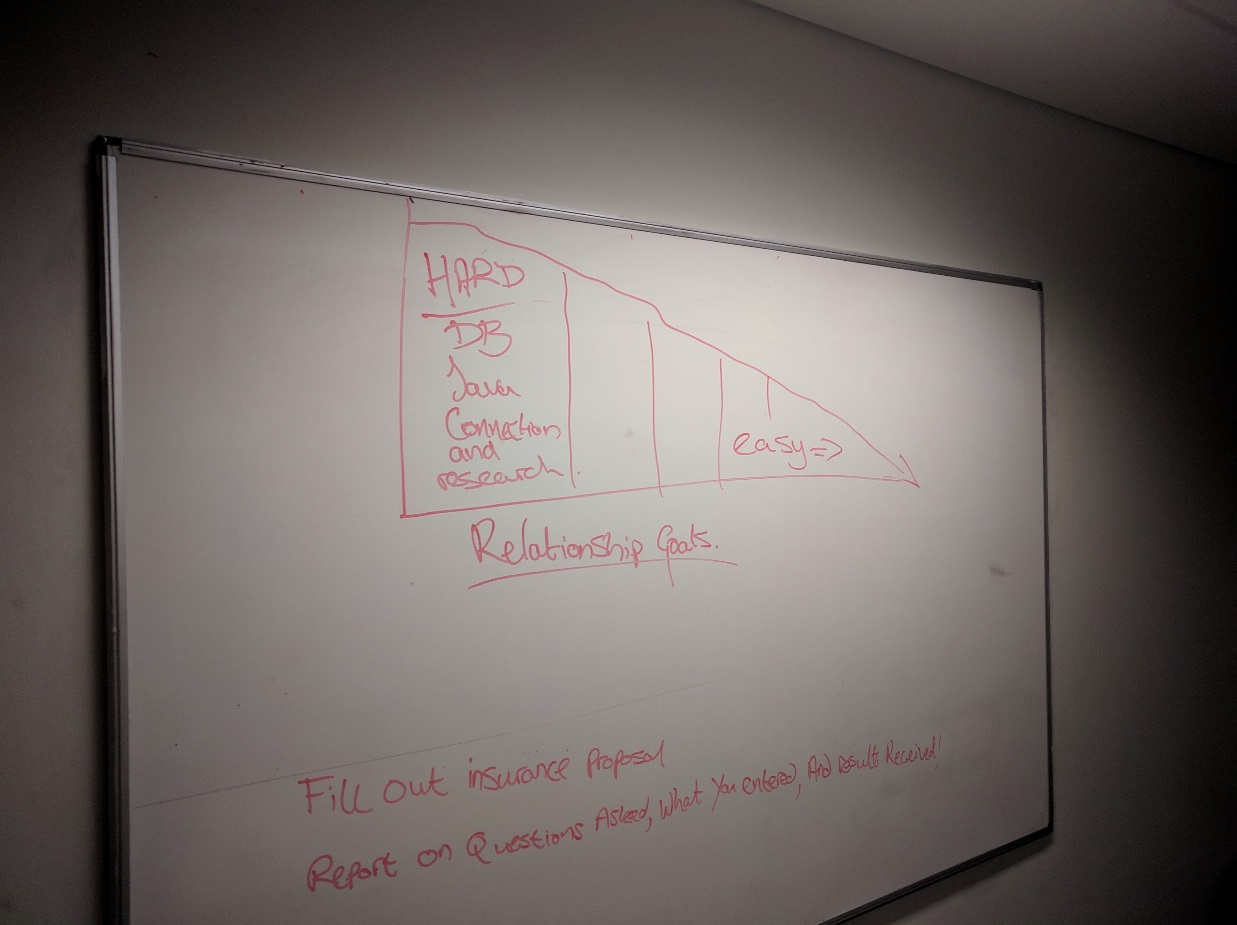 HARD
DB
Java
Connection
and
research.
easy=>
Relationship Goals.
Fill Out insurance Proposal
Report on Questions Asked, What You entered, And results Received!